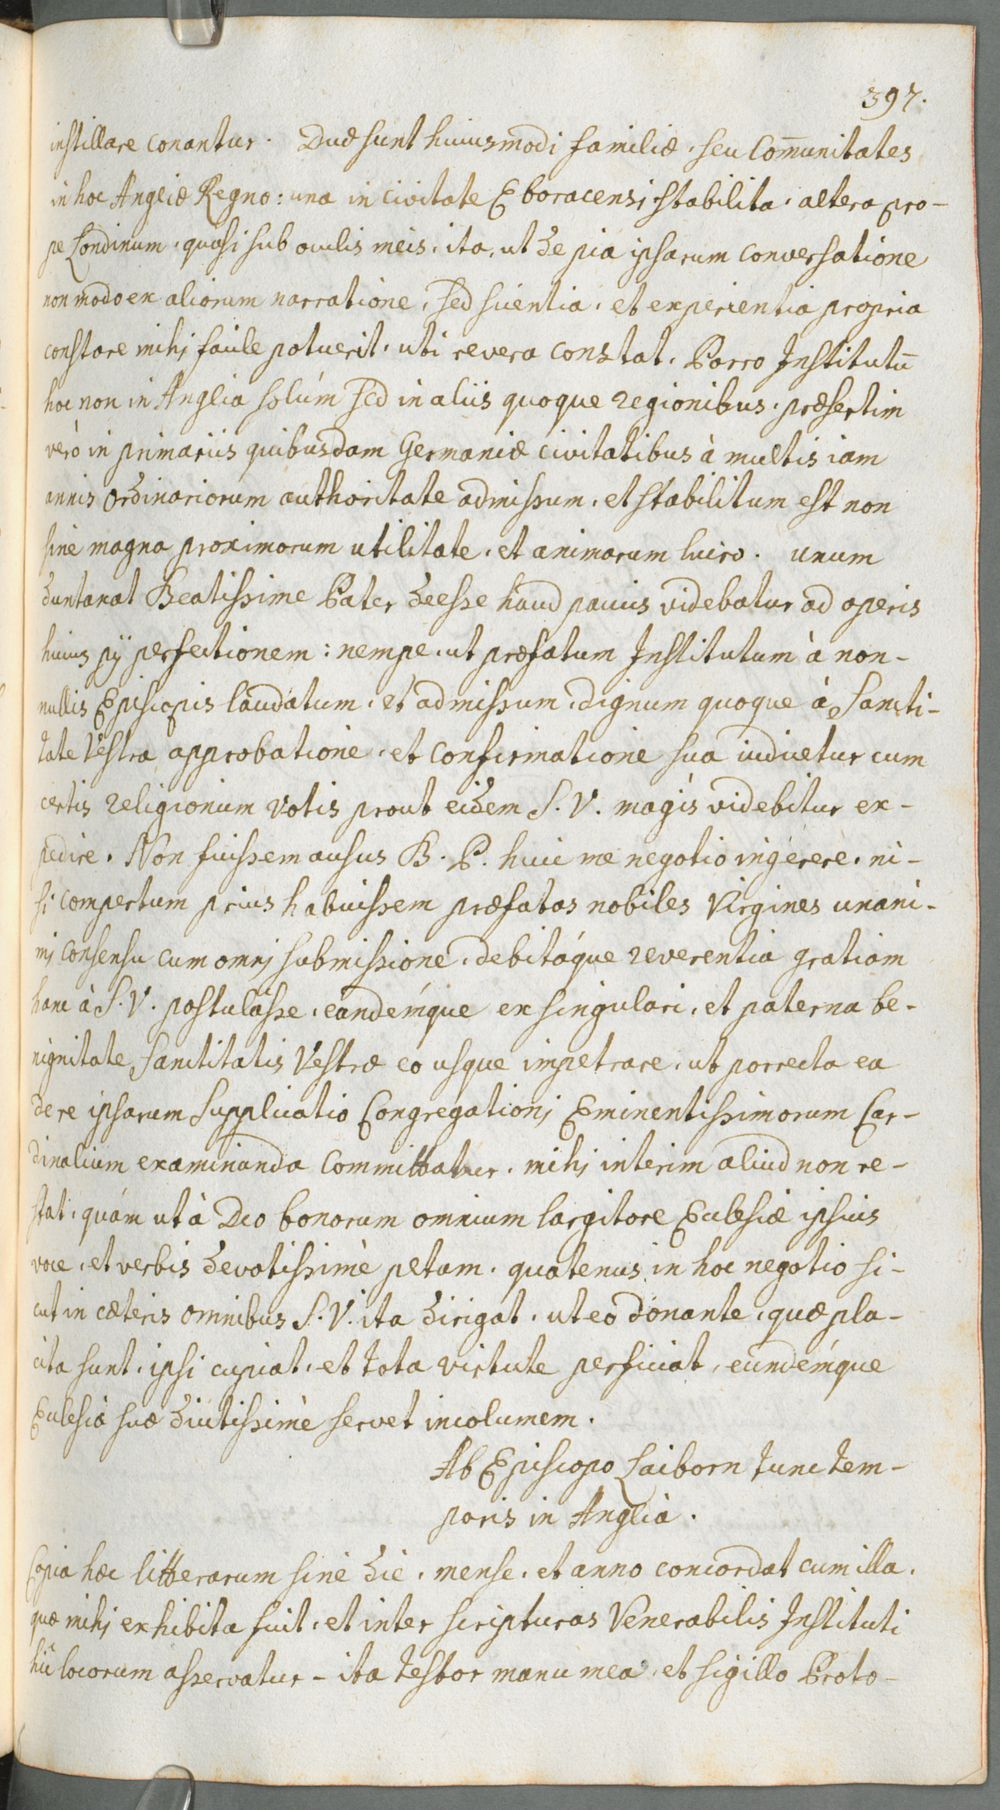 397.
instillare conantur. Duæ sunt huiusmodi familiæ, seu Com̄unitates
in hoc Angliæ Regno: una in civitate Eboracensi stabilita, altera pro-
pe Londinum, quasi sub oculis meis, ita, ut de pia ipsarum conversatione
non modo ex aliorum narratione, sed scientia, et experientia propria
constare mihi facile potuerit, uti revera constat. Porro Institutū
hoc non in Anglia solùm sed in aliis quoque regionibus, præsertim
verò in primariis quibusdam Germaniæ civitatibus à multis iam
annis Ordinariorum authoritate admissum, et stabilitum est non
sine magna proximorum utilitate, et animarum lucro. Unum
duntaxat Beatissime Pater deesse haud paucis videbatur ad operis
huius pij perfectionem: nempe, ut præfatum Institutum à non-
nullis Episcopis laudatum, et admissum, dignum quoque à Sancti-
tate Vestra approbatione, et confirmatione sua iudicetur cum
certis religionum votis prout eidem S. V. magis videbitur ex-
pedire. Non fuissem ausus B. P. huic me negotio ingerere, ni-
si compertum prius habuissem præfatas nobiles Virgines unani-
mj consensu cum omnj submissione, debitáque reverentia gratiam
hanc à S. V. postulâsse, eandémque ex singulari, et paterna be-
nignitate Sanctitatis Vestræ eo usque impetrare, ut porrecta ea
de re ipsarum supplicatio Congregationj Eminentissimorum Car-
dinalium examinanda committatur, mihi interim aliud non re-
stat, quàm ut à Deo bonorum omnium largitore Eclesiæ ipsius
voce, et verbis devotissimè petam, quatenus in hoc negotio si-
cut in cæteris omnibus S. V. ita dirigat, ut eo donante, quæ pla-
cita sunt, ipsi cupiat, et tota virtute perficiat, eundémque
Eclesiæ suæ diutissimè servet incolumem.
Ab Episcopo Laiborn tunc tem-
poris in Anglia.
Copia hæc litterarum sine die, mense, et anno concordat cum illa,
quæ mihi exhibita fuit, et inter scripturas Venerabilis Instituti
hic locorum asservatur - ita testor manu mea, et sigillo Proto-